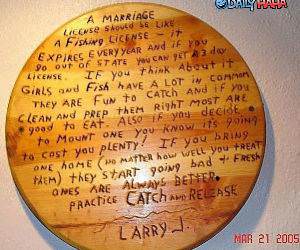 DAILY HAHA
A MARRIAGE
LICENSE SHOULD BE LIKE
A FISHING LICENSE - IT
EXPIRES EVERY YEAR AND IF YOU
GO OUT OF STATE YOU CAN GET A 3 DAY
LICENSE. IF YOU THINK ABOUT IT
GIRLS AND FISH HAVE A LOT IN COMMON
THEY ARE FUN TO CATCH AND IF YOU
CLEAN AND PREP THEM RIGHT MOST ARE
good TO EAT. ALSO IF YOU DECIDE
TO MOUNT ONE YOU KNOW ITS GOING
TO COST YOU PLENTY! IF YOU BRING
ONE HOME (NO MATTER HOW WELL YOU TREAT
THEM) THEY START GOING BAD & FRESH
ONES ARE ALWAYS BETTER.
PRACTICE CATCH AND RELEASE
LARRY J.
MAR 21 2005